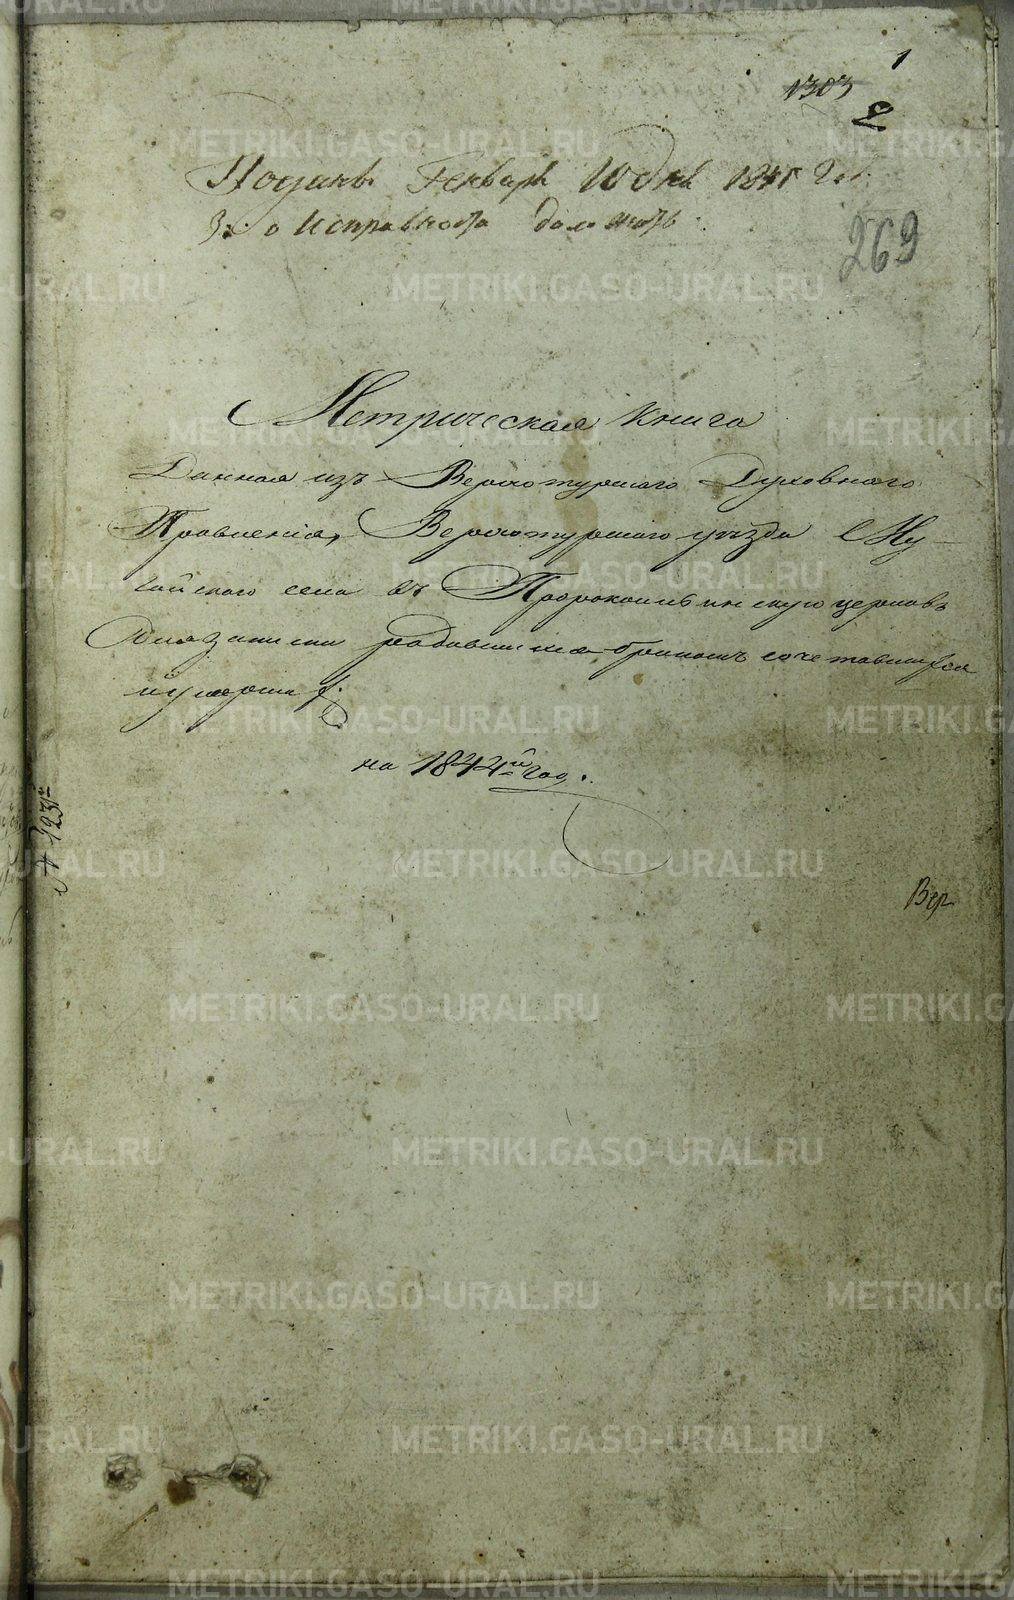 1
1303
2
Поданъ Генваря 10 дня 1845 года
За о Исправноста
269
Метрическая книга
Данная изъ Верхотурскаго Духовнаго
Правленія, Верхотурскаго уѣзда
села въ Пророкоильинскую церковь
Для записи родившихся бракомъ сочетавшихся
и умершихъ
на 1844й год.
№ 123й
Вер
METRIKI.GASO-URAL.RU